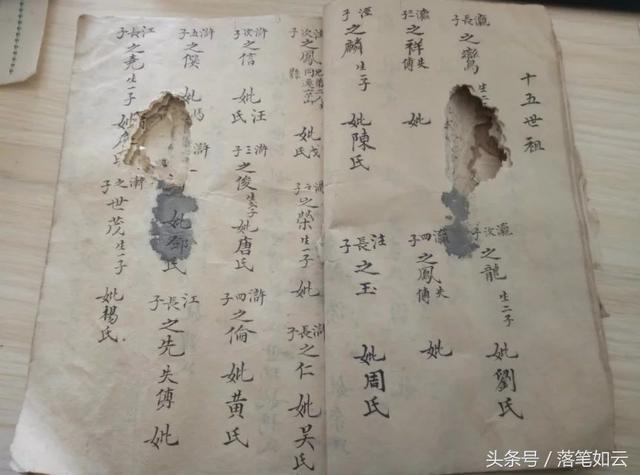 十五世祖
瀛長子之鸞生二
瀛次子之龍生二子 妣劉氏
瀛三子之祥失傳 妣
瀛四子之鳳失傳 妣
子之麟生一子 妣陳氏
長子之玉 妣周氏
次子之鳳 妣 氏
之榮生一子 妣
滸長子之仁 妣吳氏
滸次子之信 妣汪氏
滸三子之俊生一子 妣唐氏
滸四子之倫 妣黃氏
滸五子之 妣
滸
妣 氏
江長子之先失傳 妣
江長子之堯生一子 妣 氏
子之世茂生一子 妣楊氏
头条号 / 落笔如云